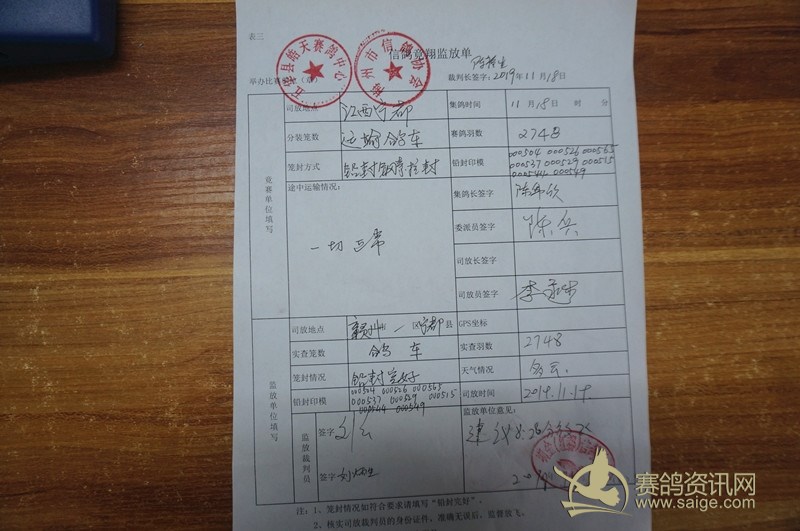 表三
信鸽竞翔监放单
裁判长签字: 2019年11月18日
竞赛单位填写
司放地点 江西宁都 集鸽时间 11月18日 时 分
分装笼数 运输鸽车 赛鸽羽数 2748
笼封方式 铅封 铅封印模 000504 000526 000565
000537 000529 000515
000544 000549
途中运输情况: 集鸽长签字
一切正常 委派员签字 陈兵
司放长签字
司放员签字
监放单位填写
司放地点 赣州 宁都县 GPS坐标
实查笼数 鸽车 实查羽数 2748
笼封情况 铅封完好 天气情况 多云.
铅封印模 000504 000526 000565
000537 000529 000515
000544 000549
司放时间 2019.11.19.
监放裁判员 签字 监放单位意见:
建议8:28
签字
注:1、笼封情况如符合要求请填写“铅封完好”.
2、核实司放裁判员的身份证件,准确无误后,监督放飞。
赛鸽资讯网
www.saige.com